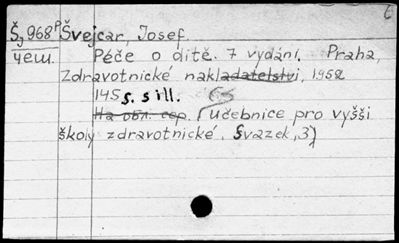 Š,968P Švejcar, Josef.
чеш. Péče o dítě. 7 vydání. Praha,
Zdravotnické nakladatelství, 1952
145 s. s ill.
На обл. сер. (učebnice pro vyšši
školy zdravotnické. Svazek, 3)